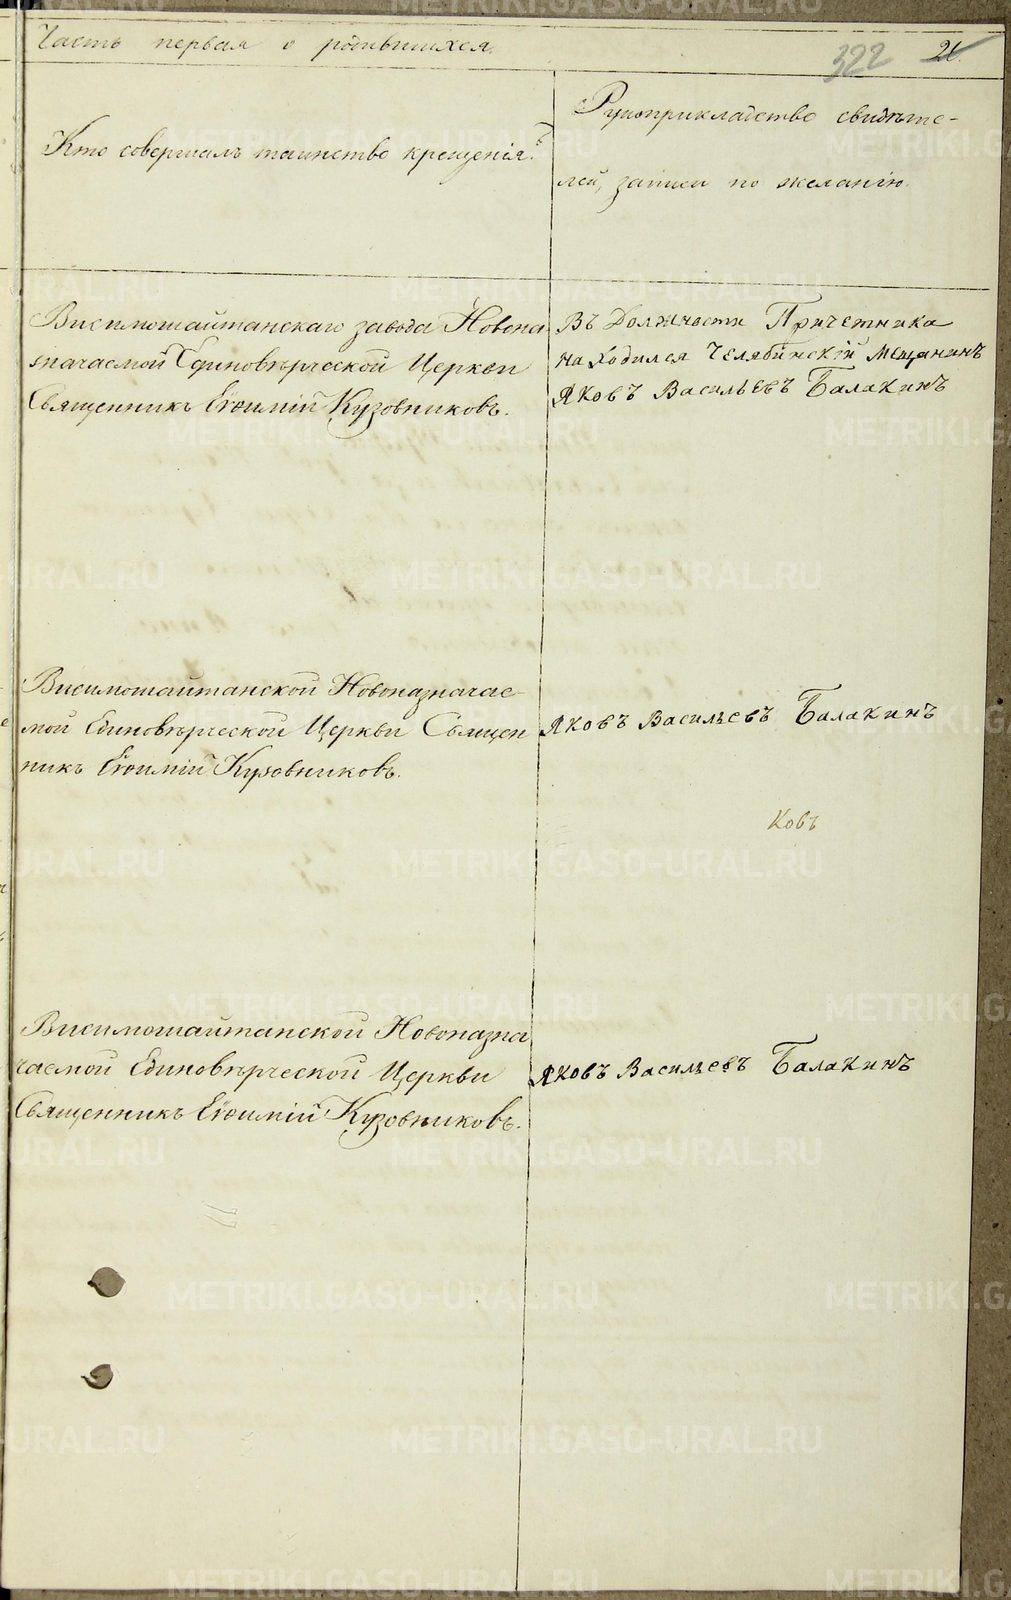 Часть первая о родившихся.
322 21.
Кто совершалъ таинство крещенія.
Рукоприкладство свидѣте-
лей, записи по желанію.
Висимошайтанскаго завода Новона
значаемой Единовѣрческой Церкви
Священникъ Евѳимій Кузовниковъ.
Въ Должности Причетника
находился Челябинскій мещанинъ
Яковъ Васильевъ Балакинъ
Висимошайтанской Новоназначае-
мой Единовѣрческой Церкви Священ
никъ Евѳимій Кузовниковъ.
Яковъ Васильевъ Балакинъ
ковъ
Висимошайтанской Новоназна
чаемой Единовѣрческой Церкви
Священникъ Евѳимій Кузовниковъ.
Яковъ Васильевъ Балакинъ
METRIKI.GASO-URAL.RU